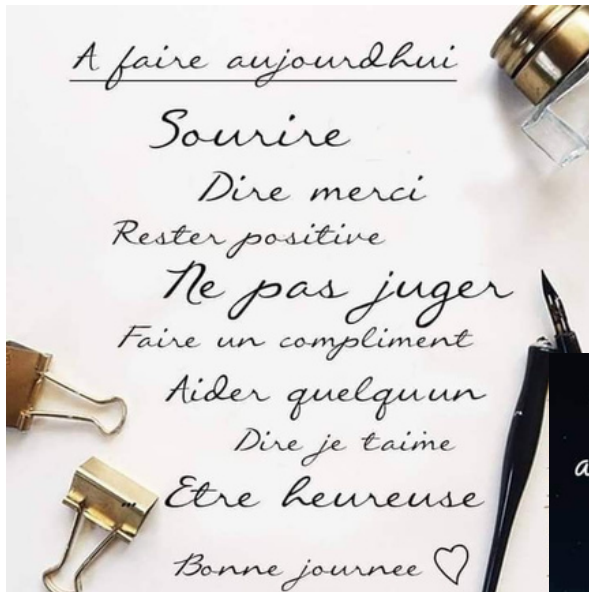 A faire aujourdhui
Sourire
Dire merci
Rester positive
Ne pas juger
Faire un compliment
Aider quelquun
Dire je taime
Etre heureuse
Bonne journee ♡